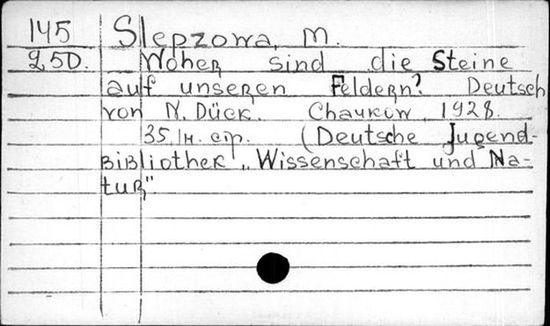 145 Slepzowa, M.
250. Woher sind die Steine
auf unseren Feldern? Deutsch
von N. Dück. Charkow, 1928.
35.
(Deutsche Jugend-
Bibliothek „Wissenschaft und Na-
tur".